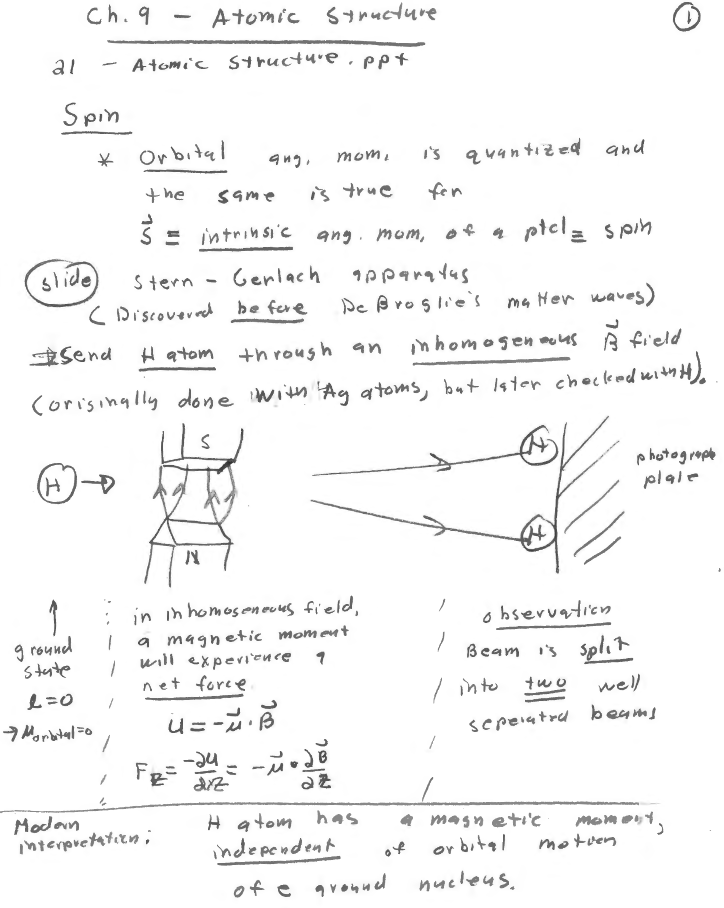 Ch. 9 - Atomic Structure
①
21 - Atomic Structure.ppt
Spin
* Orbital ang. mom. is quantized and
the same is true for
S⃗ ≡ intrinsic ang. mom. of a ptcl ≡ spin
slide Stern - Gerlach apparatus
(Discovered before De Broglie's matter waves)
→ Send H atom through an inhomogeneous B⃗ field
(originally done with Ag atoms, but later checked with H).
S
H →
N
H
H
photograph
plate
ground
state
l=0
→ μorbital=0
in inhomogeneous field,
a magnetic moment
will experience a
net force.
U = -μ⃗ · B⃗
Fz = -∂U/∂z = -μ⃗ · ∂B⃗/∂z
observation
Beam is split
into two well
seperated beams
Modern
interpretation:
H atom has a magnetic moment,
independent of orbital motion
of e around nucleus.